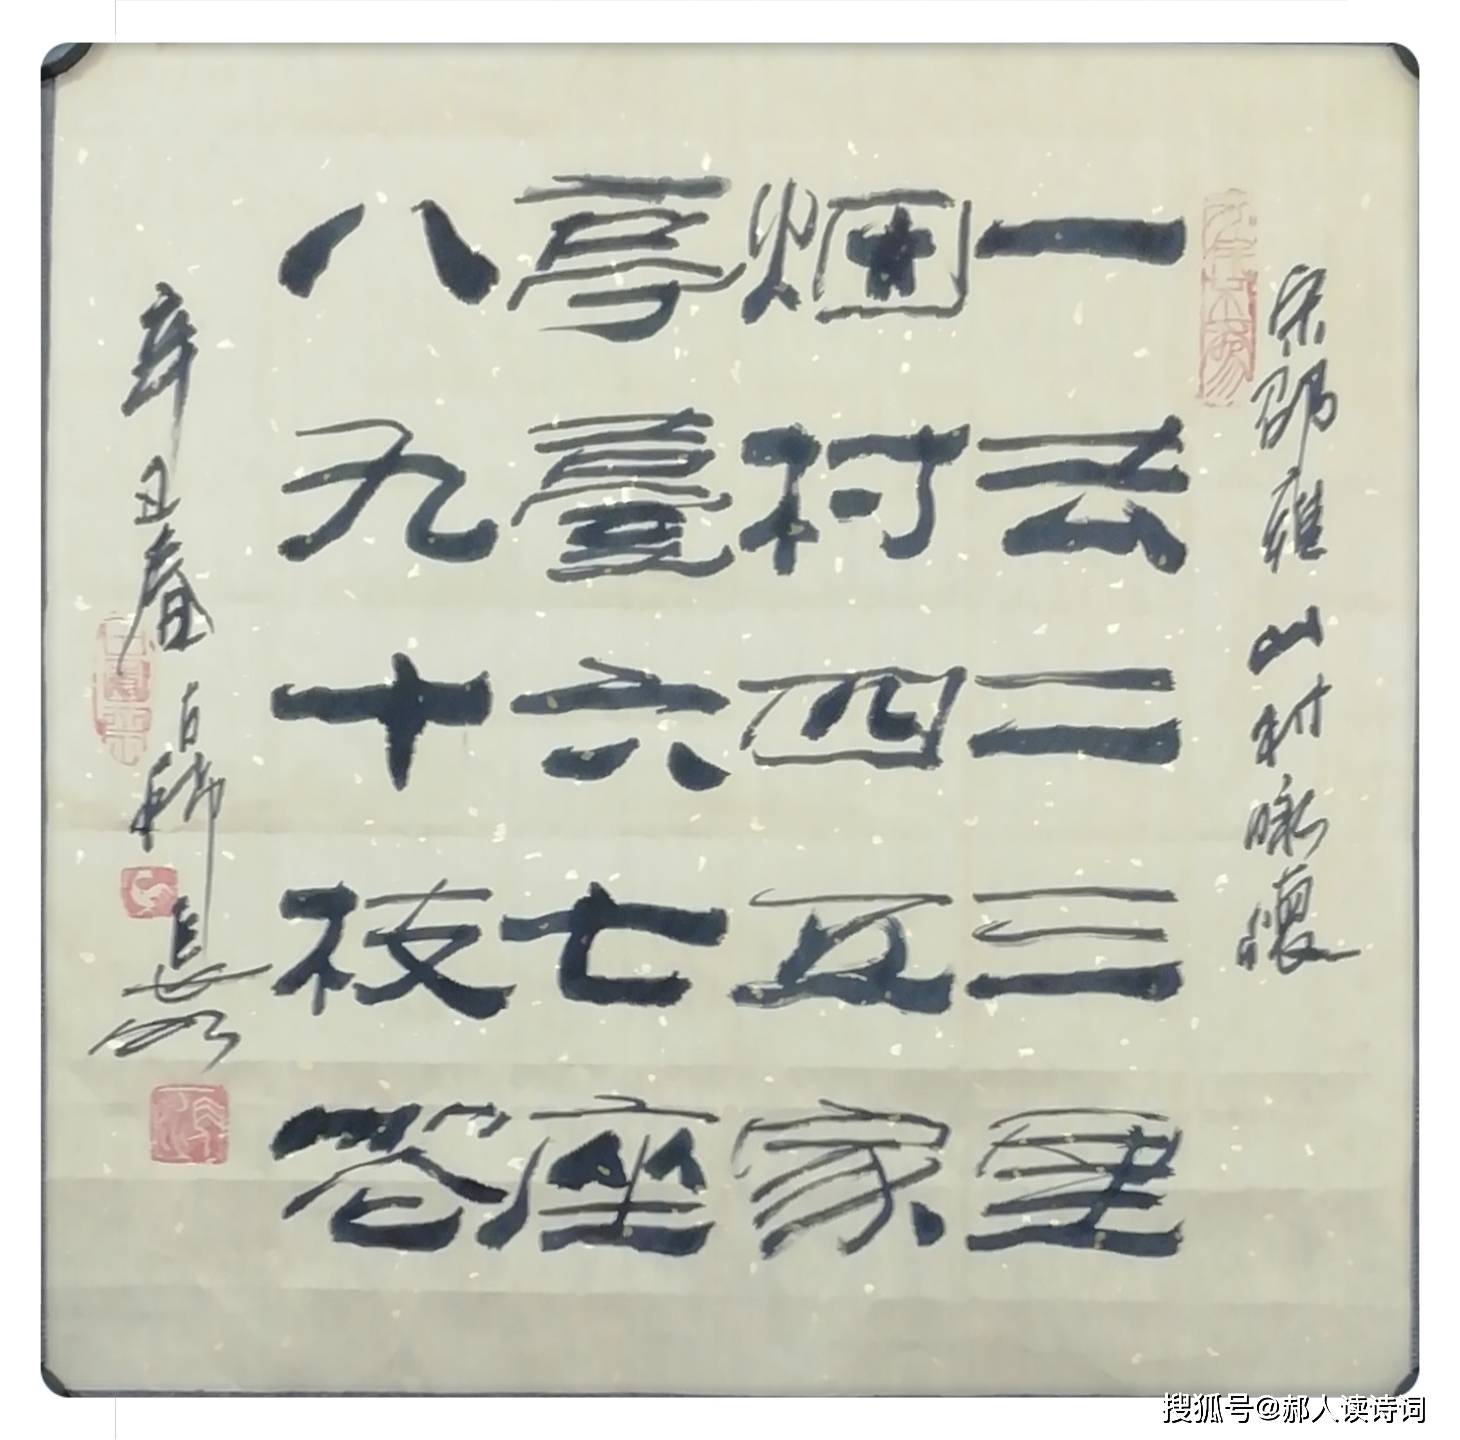 宋邵雍山村咏怀
一去二三里
烟村四五家
亭臺六七座
八九十枝花
辛丑春
搜狐号@郝人读诗词